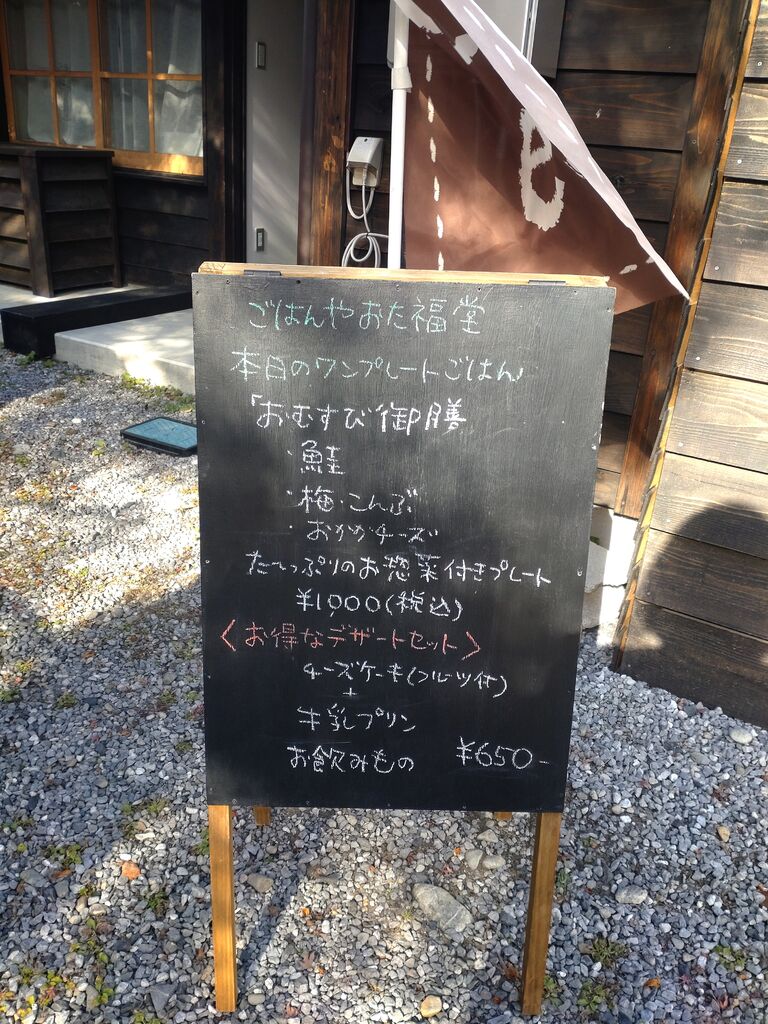 ごはんやおた福堂
本日のワンプレートごはん
「おむすび御膳
・鮭
・梅・こんぶ
・おかかチーズ
たーっぷりのお惣菜付きプレート
¥1,000(税込)
〈お得なデザートセット〉
チーズケーキ(フルーツ付)
+
牛乳プリン
お飲みもの ¥650-